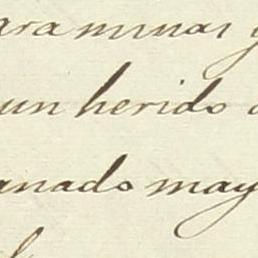 ara minas y
un herido
anado may